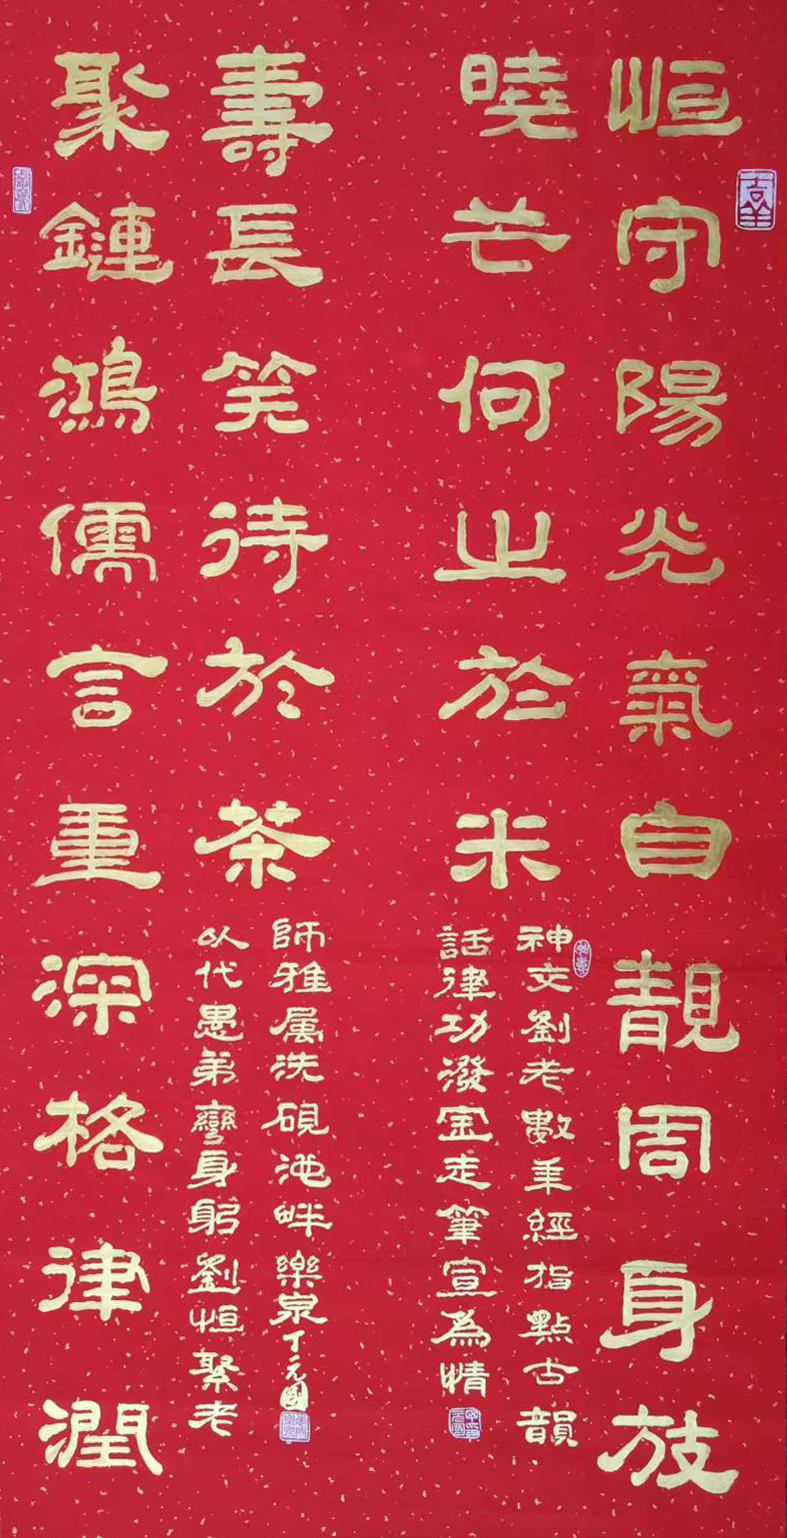 恒守陽光氣自靚周身放
曉芒何止於米
神交劉老數年經指點古韻
話律功潑金走筆宣為情
聚鏈鴻儒言重深格律潤
壽長笑待於茶
以代愚弟彎身躬劉恒聚老
師雅属洗硯池畔樂泉丁元國